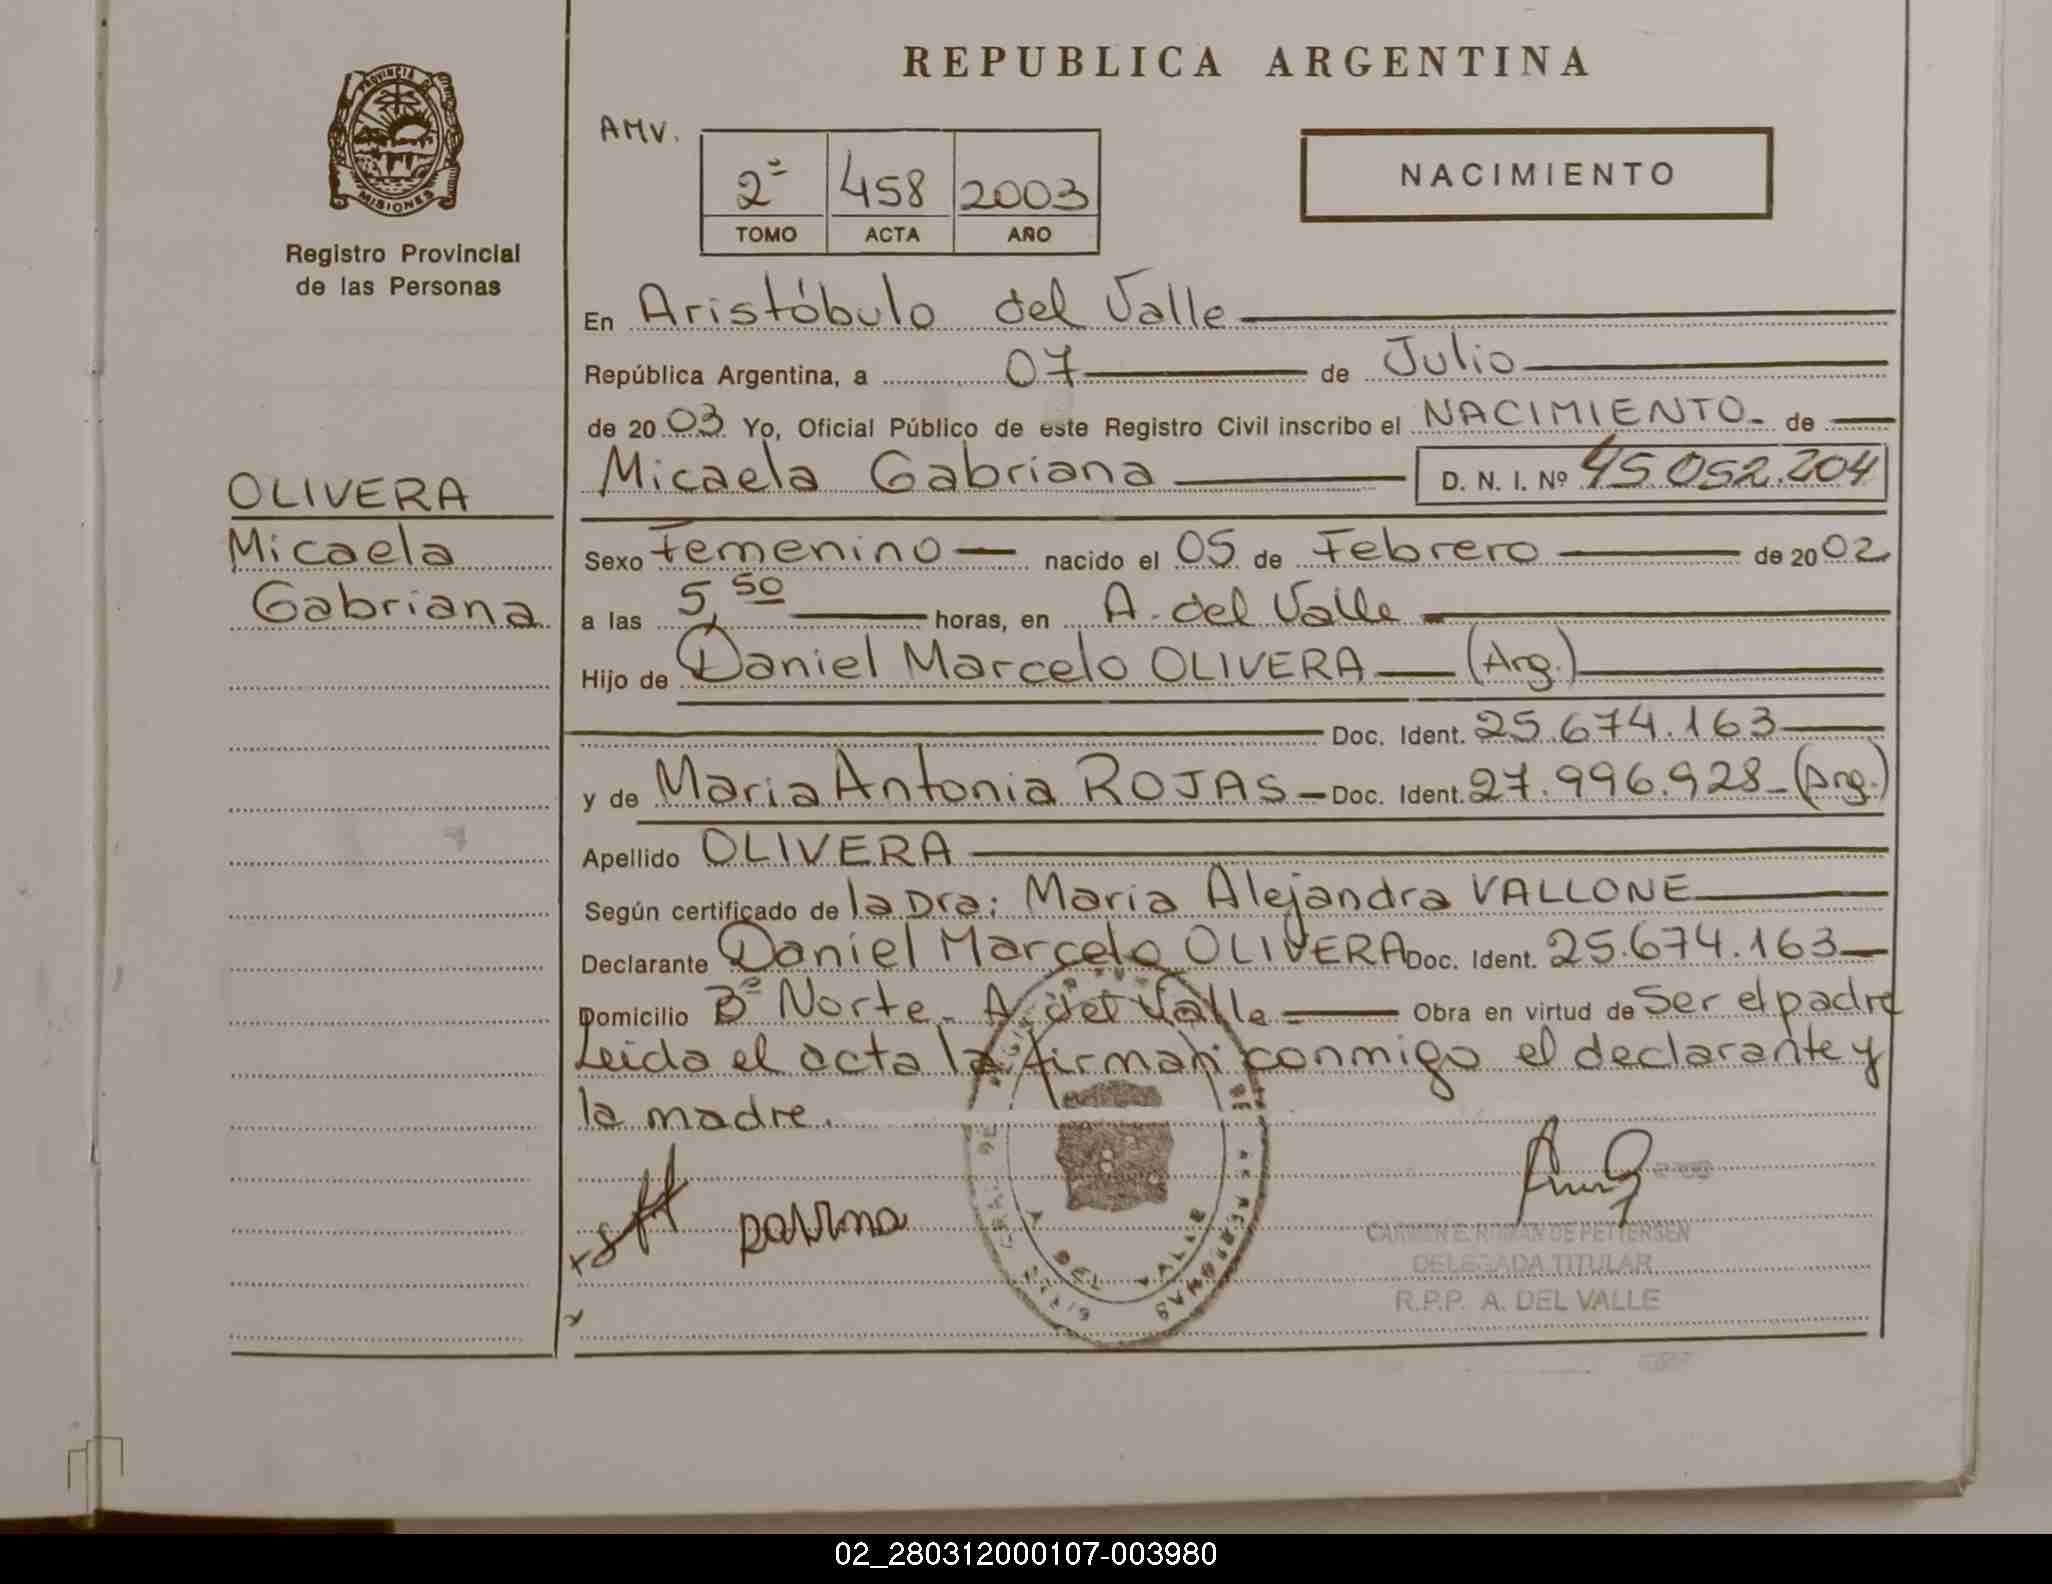 REPUBLICA ARGENTINA
PROVINCIA
MISIONES
Registro Provincial
de las Personas
AMV.
2º 458 2003
TOMO ACTA AÑO
NACIMIENTO
En Aristóbulo del Valle
República Argentina, a 07 de Julio
de 2003 Yo, Oficial Público de este Registro Civil inscribo el NACIMIENTO de
Micaela Gabriana D. N. I. Nº 45.052.204
OLIVERA
Micaela
Gabriana
Sexo Femenino nacido el 05 de Febrero de 2002
a las 5,50 horas, en A. del Valle
Hijo de Daniel Marcelo OLIVERA (Arg.)
Doc. Ident. 25.674.163
y de Maria Antonia ROJAS Doc. Ident. 27.996.928 (Arg.)
Apellido OLIVERA
Según certificado de la Dra: Maria Alejandra VALLONE
Declarante Daniel Marcelo OLIVERA Doc. Ident. 25.674.163
Domicilio Bº Norte. A del Valle Obra en virtud de Ser el padre
Leida el acta la firman conmigo el declarante y
la madre.
CARMEN E. ROMAN DE PETTERSEN
DELEGADA TITULAR
R.P.P. A. DEL VALLE
02_280312000107-003980